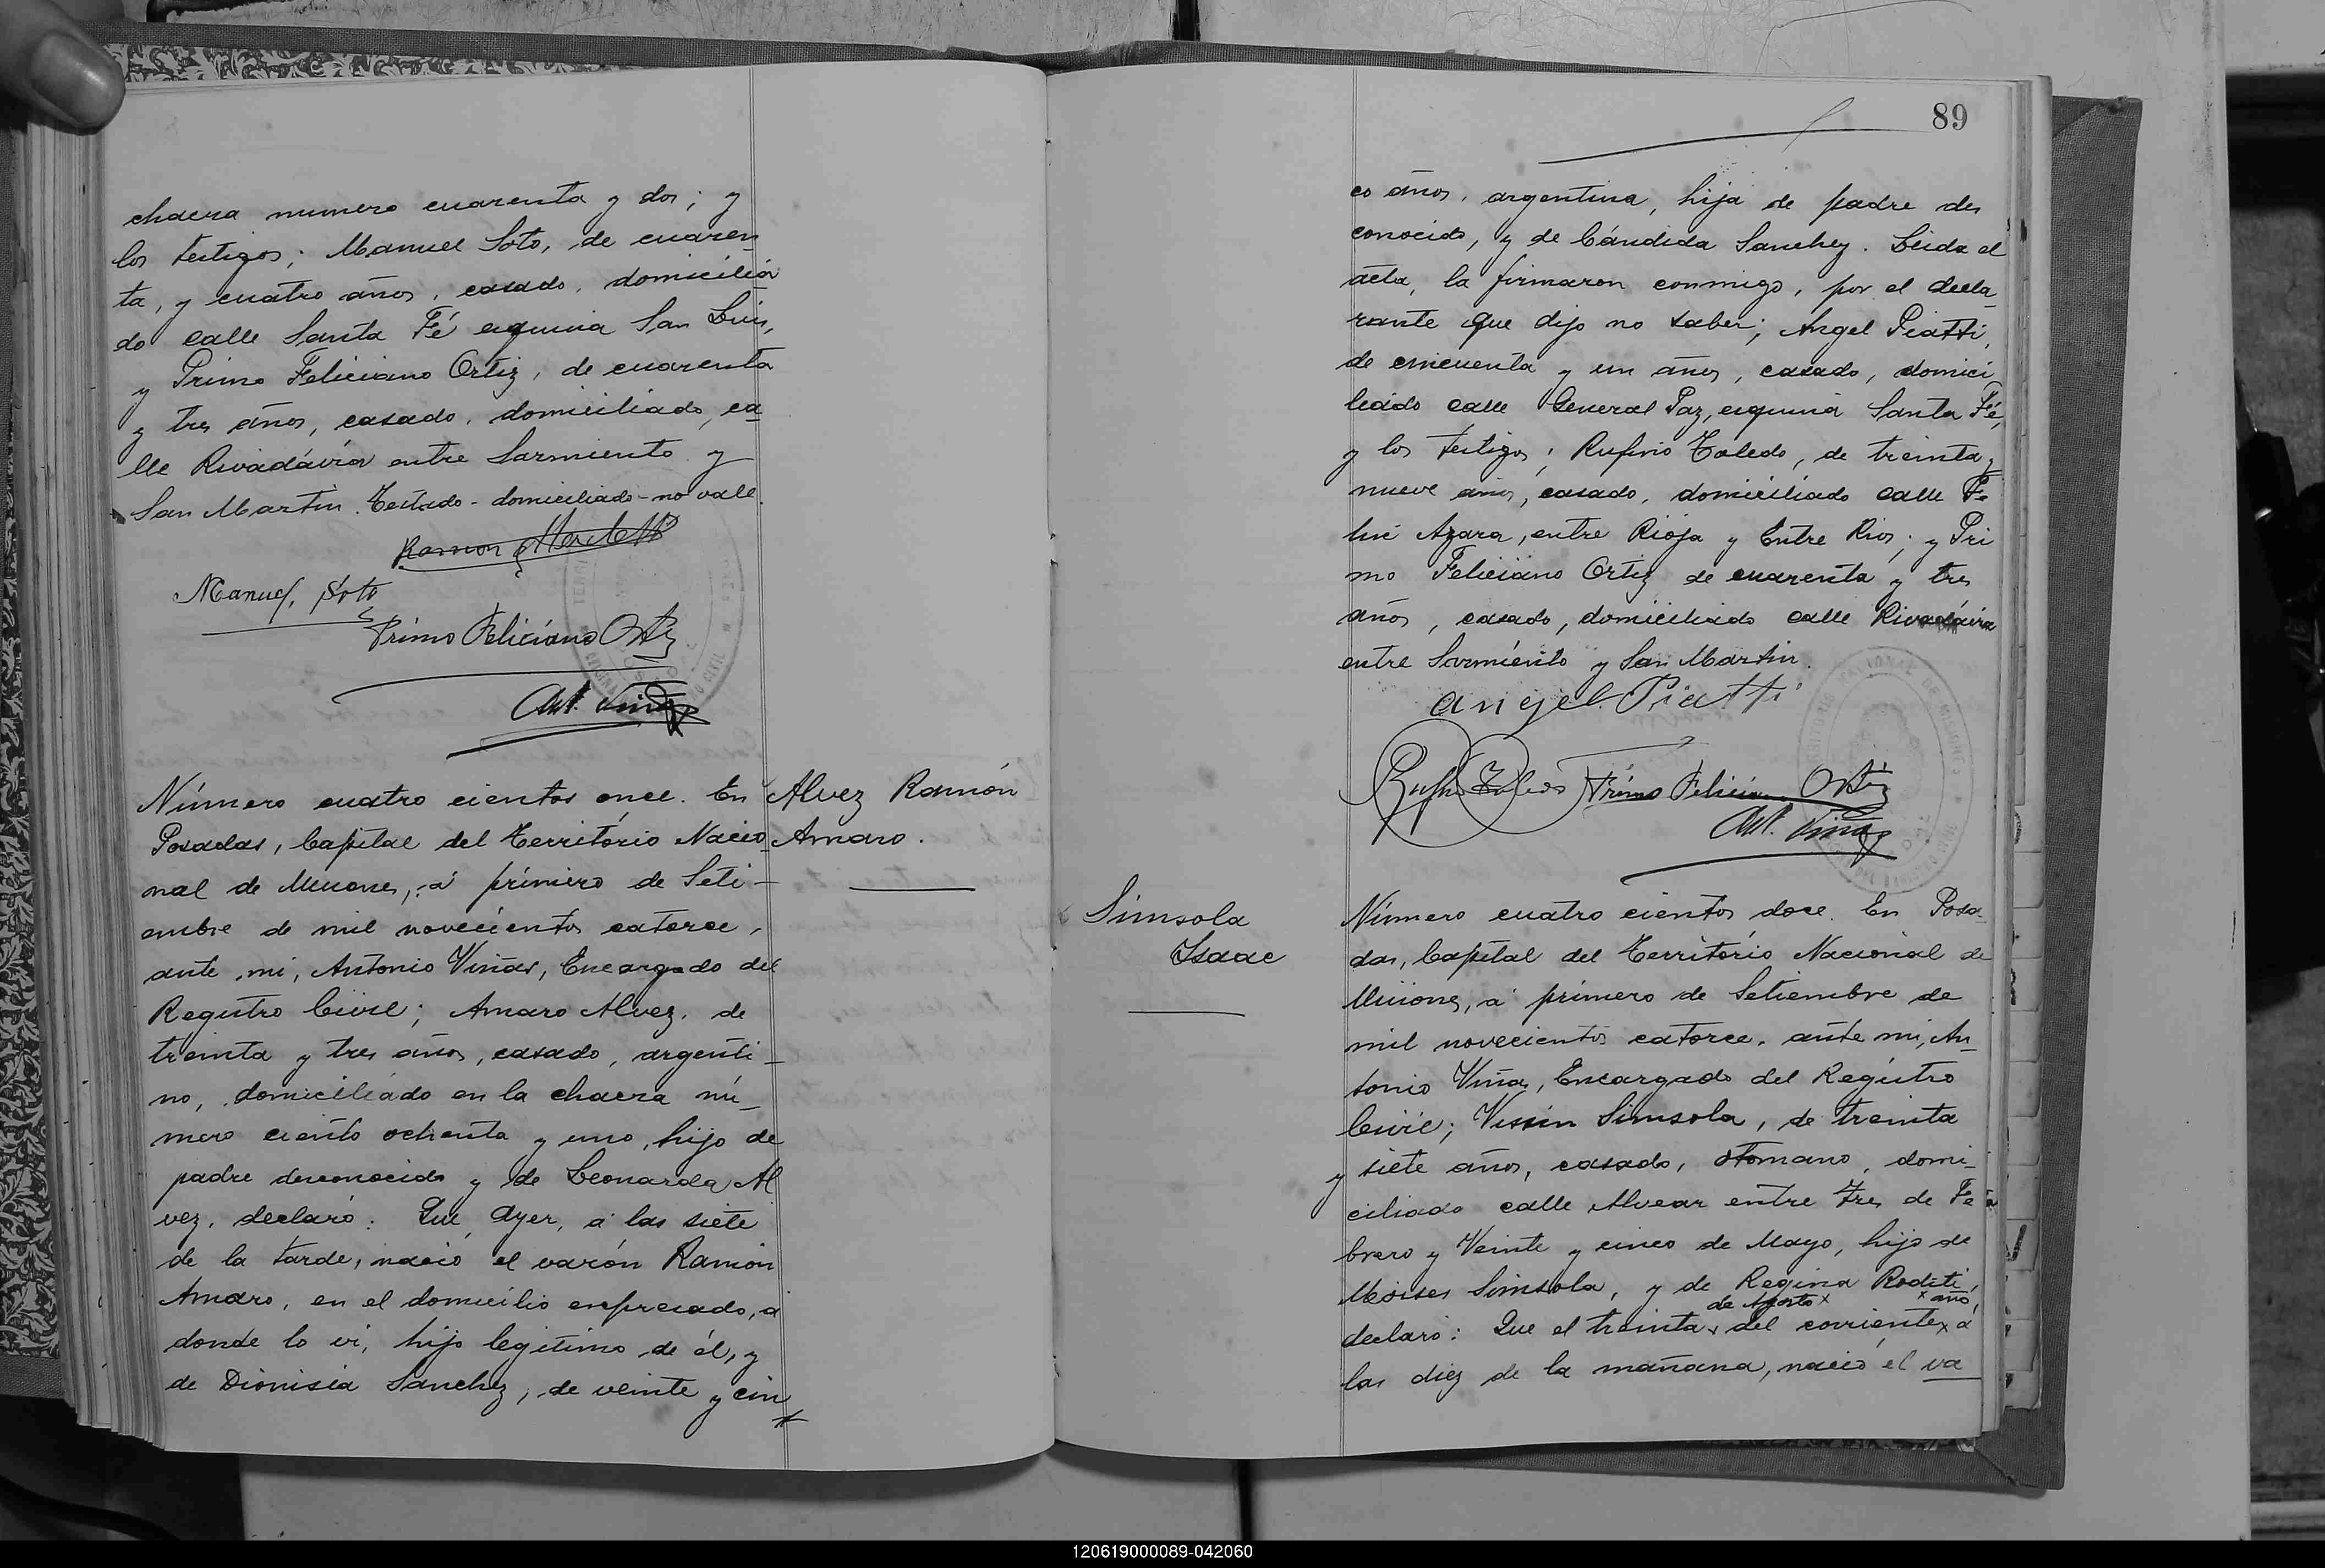 chacra numero cuarenta y dos; y
los testigos; Manuel Soto, de cuaren
ta, y cuatro años, casado, domicilia
do calle Santa Fé esquina San Luis,
y Primo Feliciano Ortiz, de cuarenta
y tres años, casado, domiciliado, ca
lle Rivadávia entre Sarmiento y
San Martin. Testado - domiciliado - no vale.
Ramon
Manuel Soto
Primo Feliciano Ortiz
Ant. Viñas
Número cuatro cientos once. En
Posadas, Capital del Território Nacio
nal de Misiones, á primero de Seti-
embre de mil novecientos catorce,
ante mi, Antonio Viñas, Encargado del
Registro Civil; Amaro Alvez, de
treinta y tres años, casado, argenti-
no, domiciliado en la chacra nú-
mero ciento ochenta y uno, hijo de
padre desconocido y de Leonarda Al
vez, declaró: Que, Ayer, á las siete
de la tarde, nació el varón Ramón
Amaro, en el domicilio expresado, a
donde lo vi, hijo legitimo de él, y
de Dionisia Sanchez, de veinte y cin
Alvez Ramón
Amaro.
89
co años, argentina, hija de padre des
conocido, y de Cándida Sanchez. Leida el
acta, la firmaron conmigo, por el decla
rante que dijo no saber; Angel Piatti,
de cincuenta y un años, casado, domici
liado calle General Paz, esquina Santa Fé,
y los testigos; Rufino Toledo, de treinta y
nueve años, casado, domiciliado calle Fe
lix Azara, entre Rioja y Entre Rios; y Pri
mo Feliciano Ortiz de cuarenta y tres
años, casado, domiciliado calle Rivadávia
entre Sarmiento y San Martin.
angel. Piatti
Rufino Toledo Primo Feliciano Ortiz
Ant. Viñas
Simsola
Isaac
Número cuatro cientos doce. En Posa
das, Capital del Território Nacional de
Misiones, á primero de Setiembre de
mil novecientos catorce, ante mi, An
tonio Viñas, Encargado del Registro
Civil; Simsola, de treinta
y siete años, casado, otomano, domi-
ciliado calle Alvear entre Tres de Fe
brero y Veinte y cinco de Mayo, hijo de
Moises Simsola, y de Regina Roditi,
de Agosto x x año,
declaró: Que el treinta x del corriente x á
las diez de la mañana, nació el va
120619000089-042060